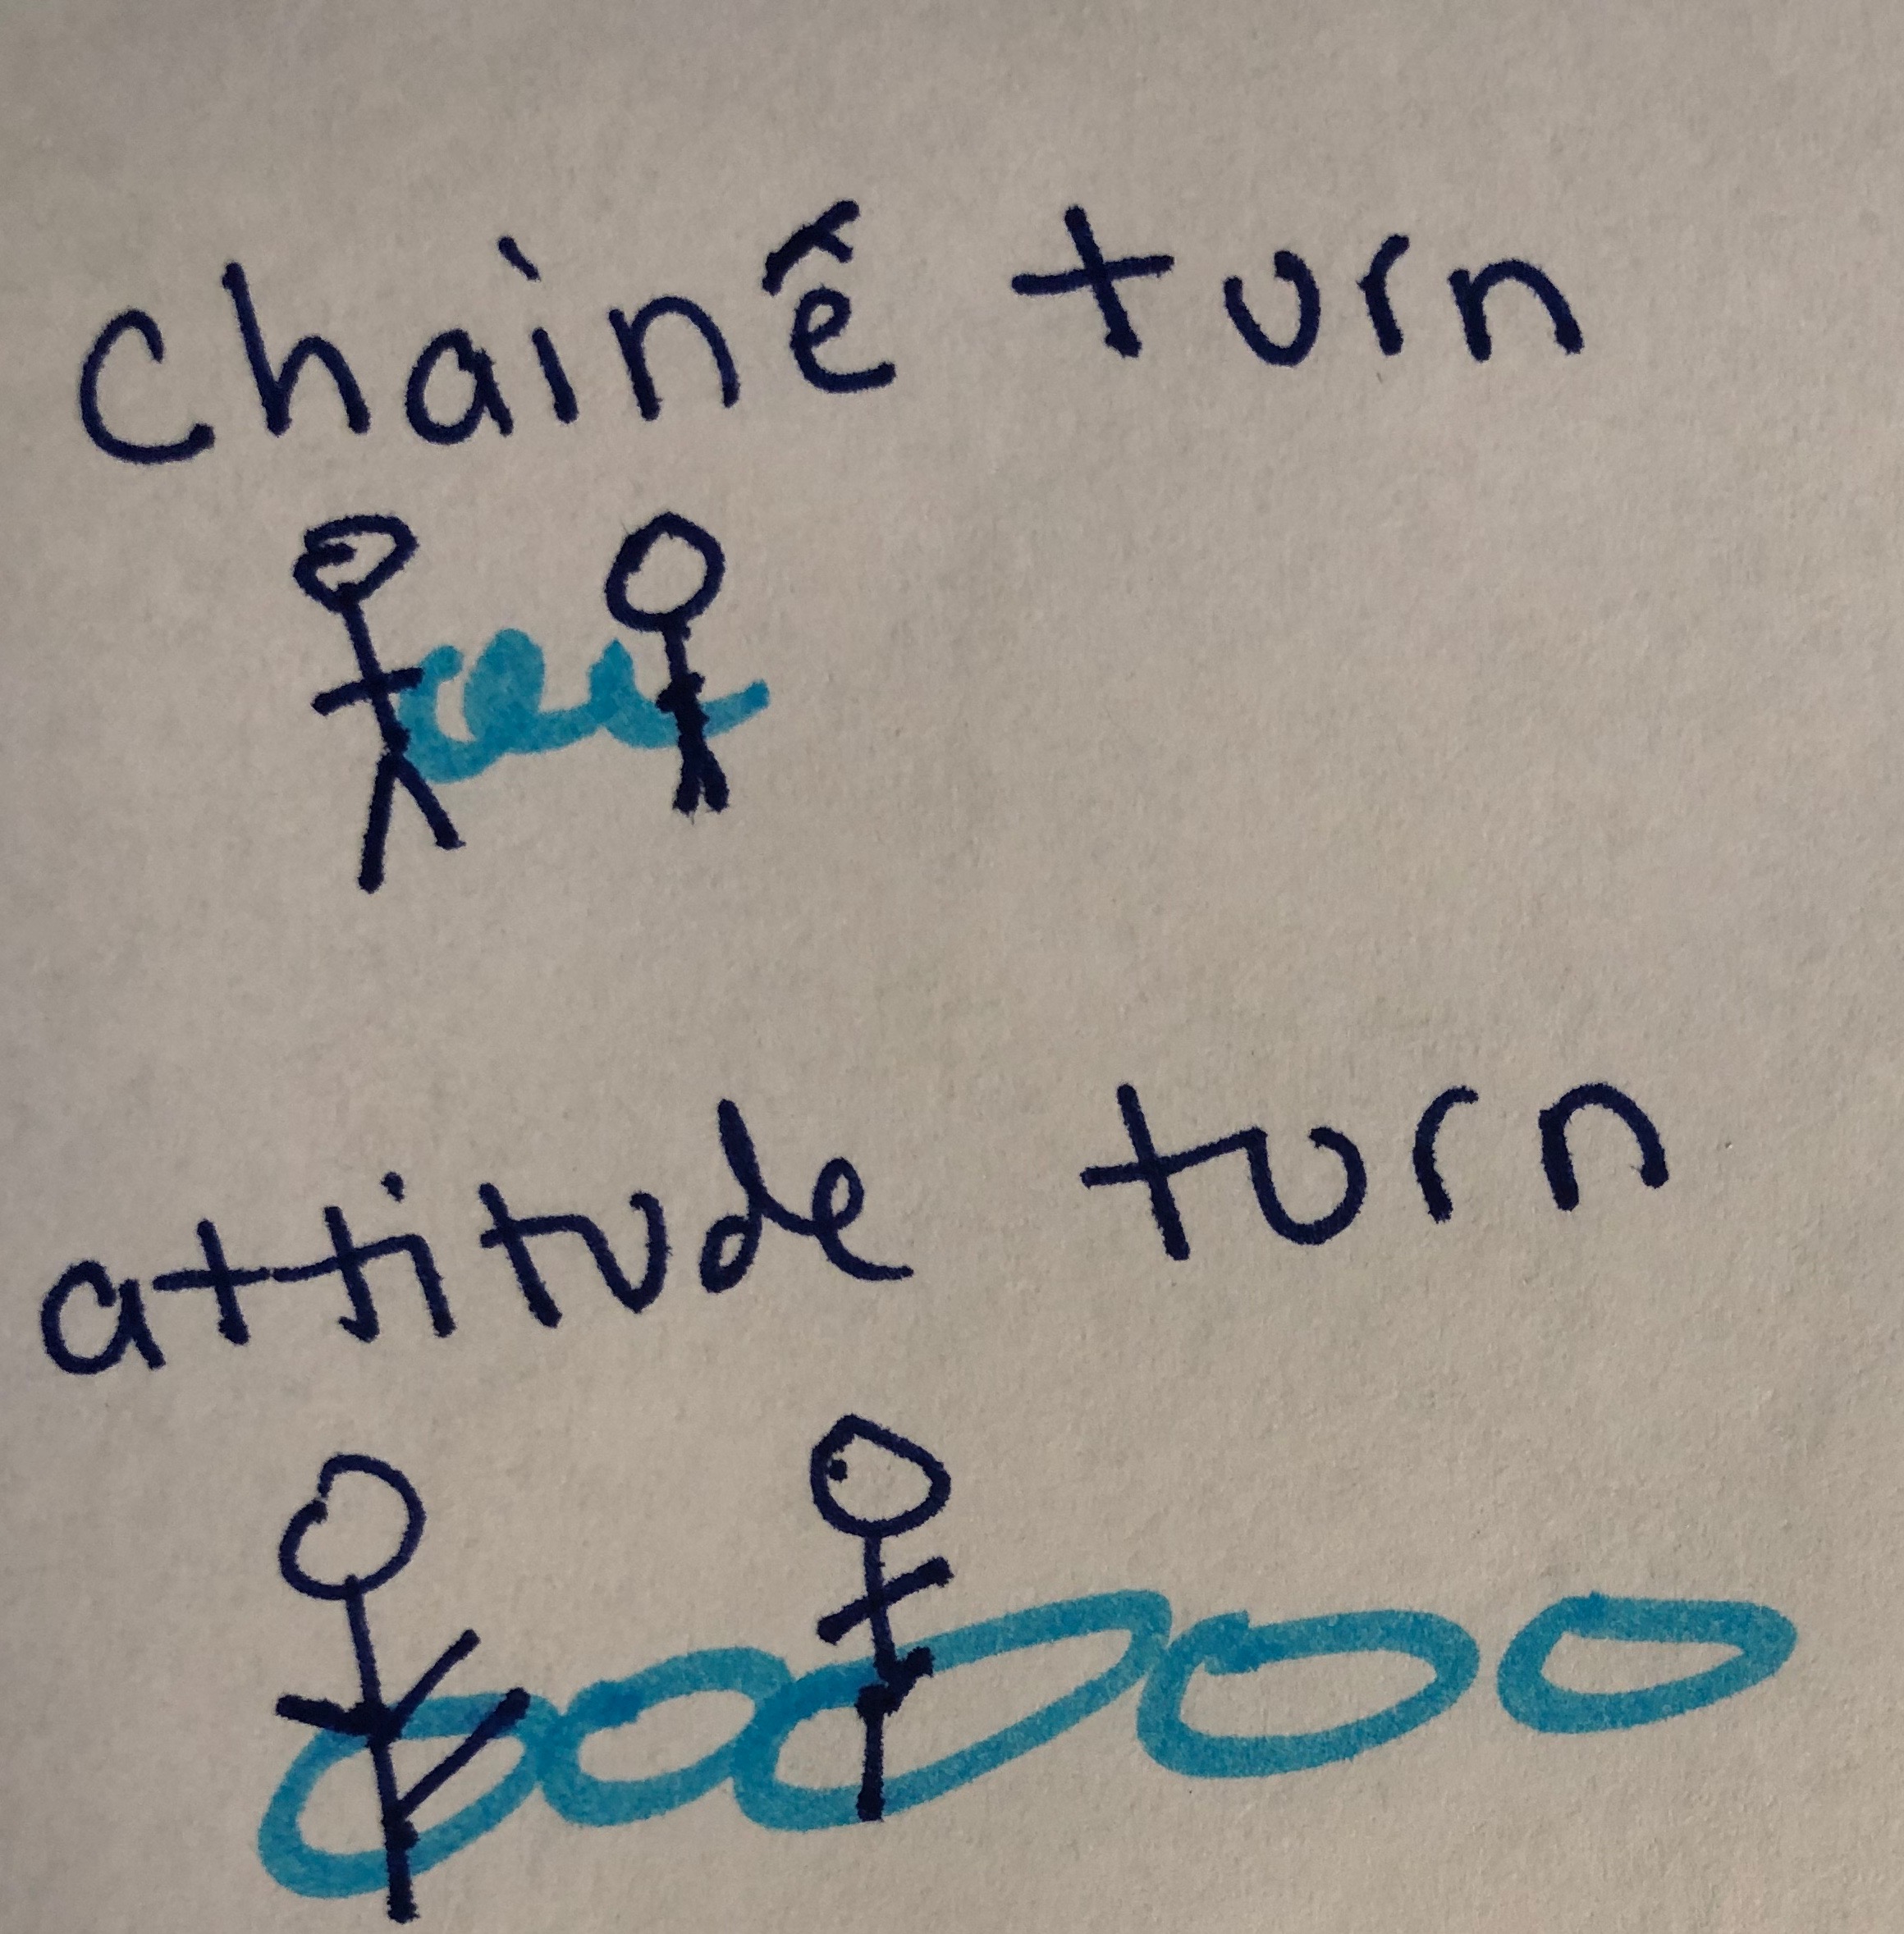 chainê turn
attitude turn